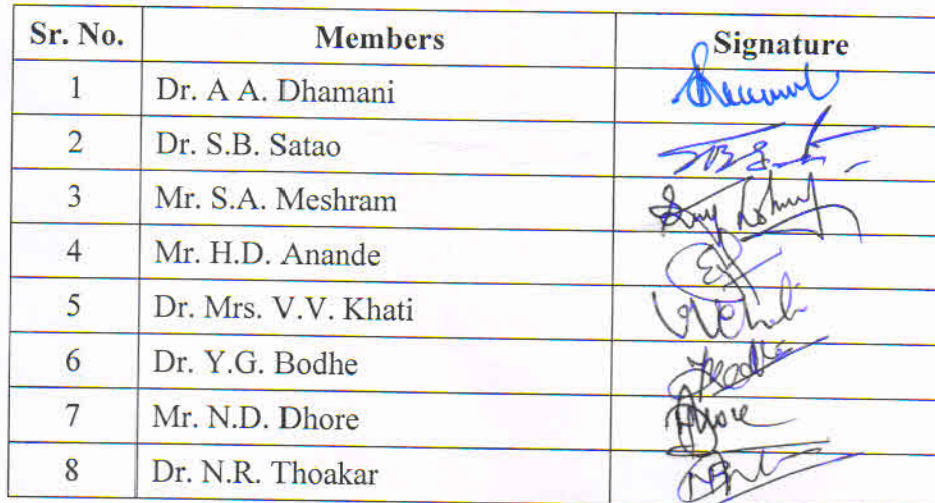 Sr. No. Members Signature
1 Dr. A A. Dhamani
2 Dr. S.B. Satao
3 Mr. S.A. Meshram
4 Mr. H.D. Anande
5 Dr. Mrs. V.V. Khati
6 Dr. Y.G. Bodhe
7 Mr. N.D. Dhore Dhore
8 Dr. N.R. Thoakar